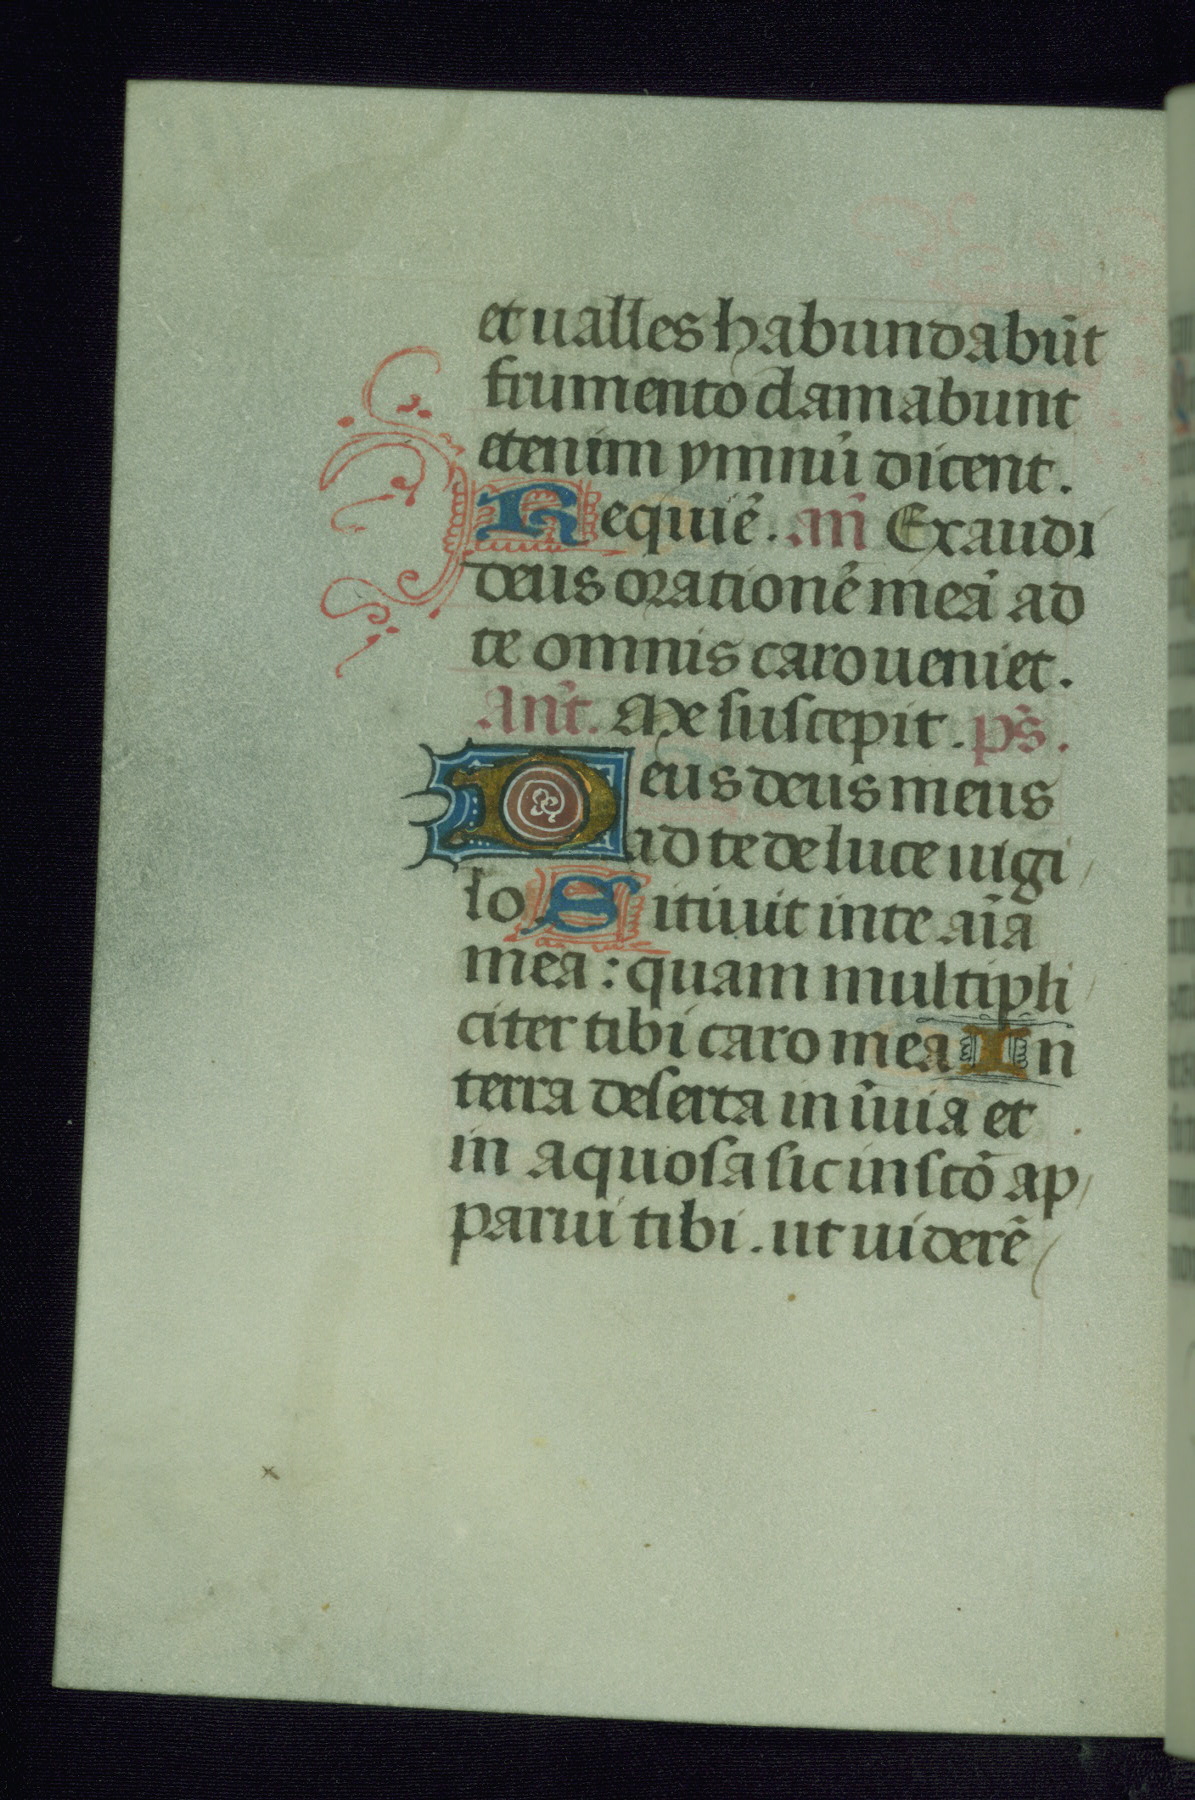 et ualles habundabūt
frumento clamabunt
etenim ymnū dicent.
Requiē. añ Exaudi
deus orationē meā ad
te omnis caro ueniet.
Añt. Me suscepit. ps̄.
Deus deus meus
ad te de luce uigi
lo Sitiuit in te aīa
mea : quam multipli
citer tibi caro mea In
terra deserta in īuia et
in aquosa sic in sctō ap
parui tibi . ut uiderē